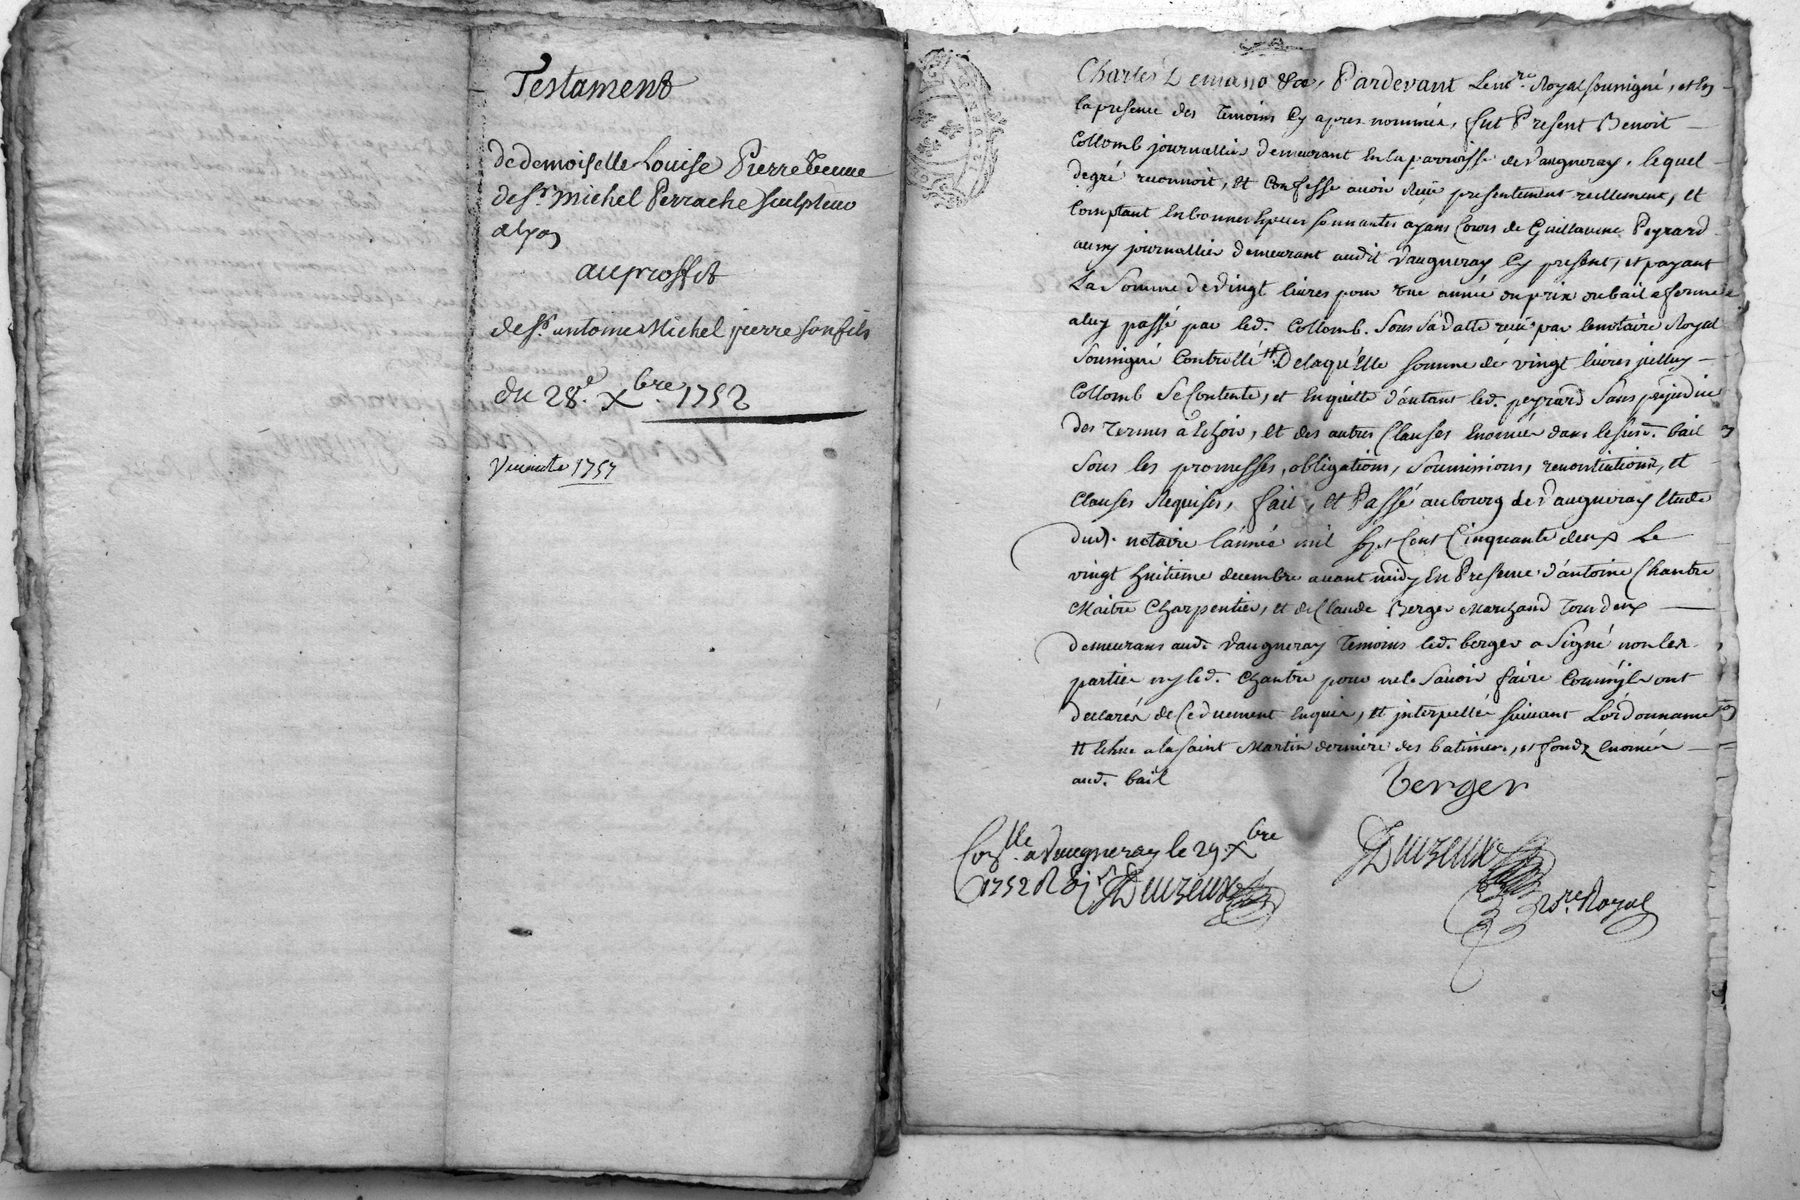 Testament
de demoiselle Louise Pierre veuve
de Sr. Michel Perrache sculpteur
a lyon
au proffit
de Sr. antoine Michel pierre son fils
du 28.e Xbre 1752
1757
Charles Demano &ca, Pardevant Le nre. Royal sousigné, et en
la presence des temoins cy apres nommés, fut Present Benoit
Collomb journallier demeurant en la parroisse de Vaugneray, lequel
de gré reconnoit, et confesse avoir reçu presentement reellement, et
comptant en bonnes especes sonnantes ayans cours de Guillaume Peyrard
aussy journallier demeurant audit Vaugneray cy present, et payant
La Somme de vingt livres pour une année du prix du bail a ferme
a luy passé par led. Collomb. sous sa datte reçu par le notaire Royal
sousigné Controllé # De laquelle somme de vingt livres icelluy
Collomb se Contente, et en quitte d'autant led. peyrard sans prejudice
des termes a Echoir, et des autres Clauses Enoncées dans le susd. bail
sous les promesses, obligations, soumissions, renontiations, et
clauses Requises, fait, et Passé au bourg de Vaugneray Etude
dud. notaire l'année mil sept Cent Cinquante deux Le
vingt huitieme decembre avant midy En Presence d'antoine Chantre
Maitre Charpentier, et de Claude Berger Marchand tous deux
demeurans aud. Vaugneray temoins led. berger a signé non les
parties ny led. Chantre pour ne le savoir faire Comm'ils ont
declarés de ce duement enquis, et interpellés suivant L'ordonnance
# Echue a la saint Martin derniere des batimens, et fondz enoncés
aud. bail
berger
Duvzeux
nre. Royal
Conlle. a Vaugneray le 29. Xbre
1752 R Duvzeux